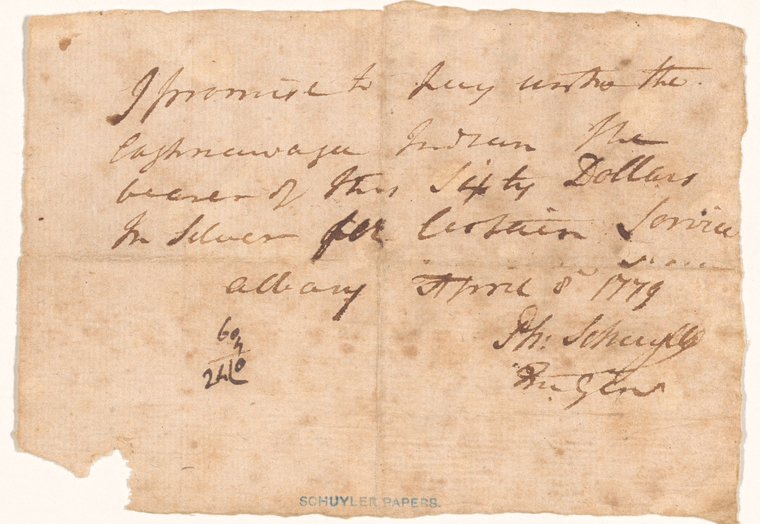 I promise to pay unto the
Caghnawaga Indian the
bearer of this Sixty Dollars
In Silver for Certain Service
Albany April 8 1779
Ph: Schuyler
Gen
60
4
240
SCHUYLER PAPERS.